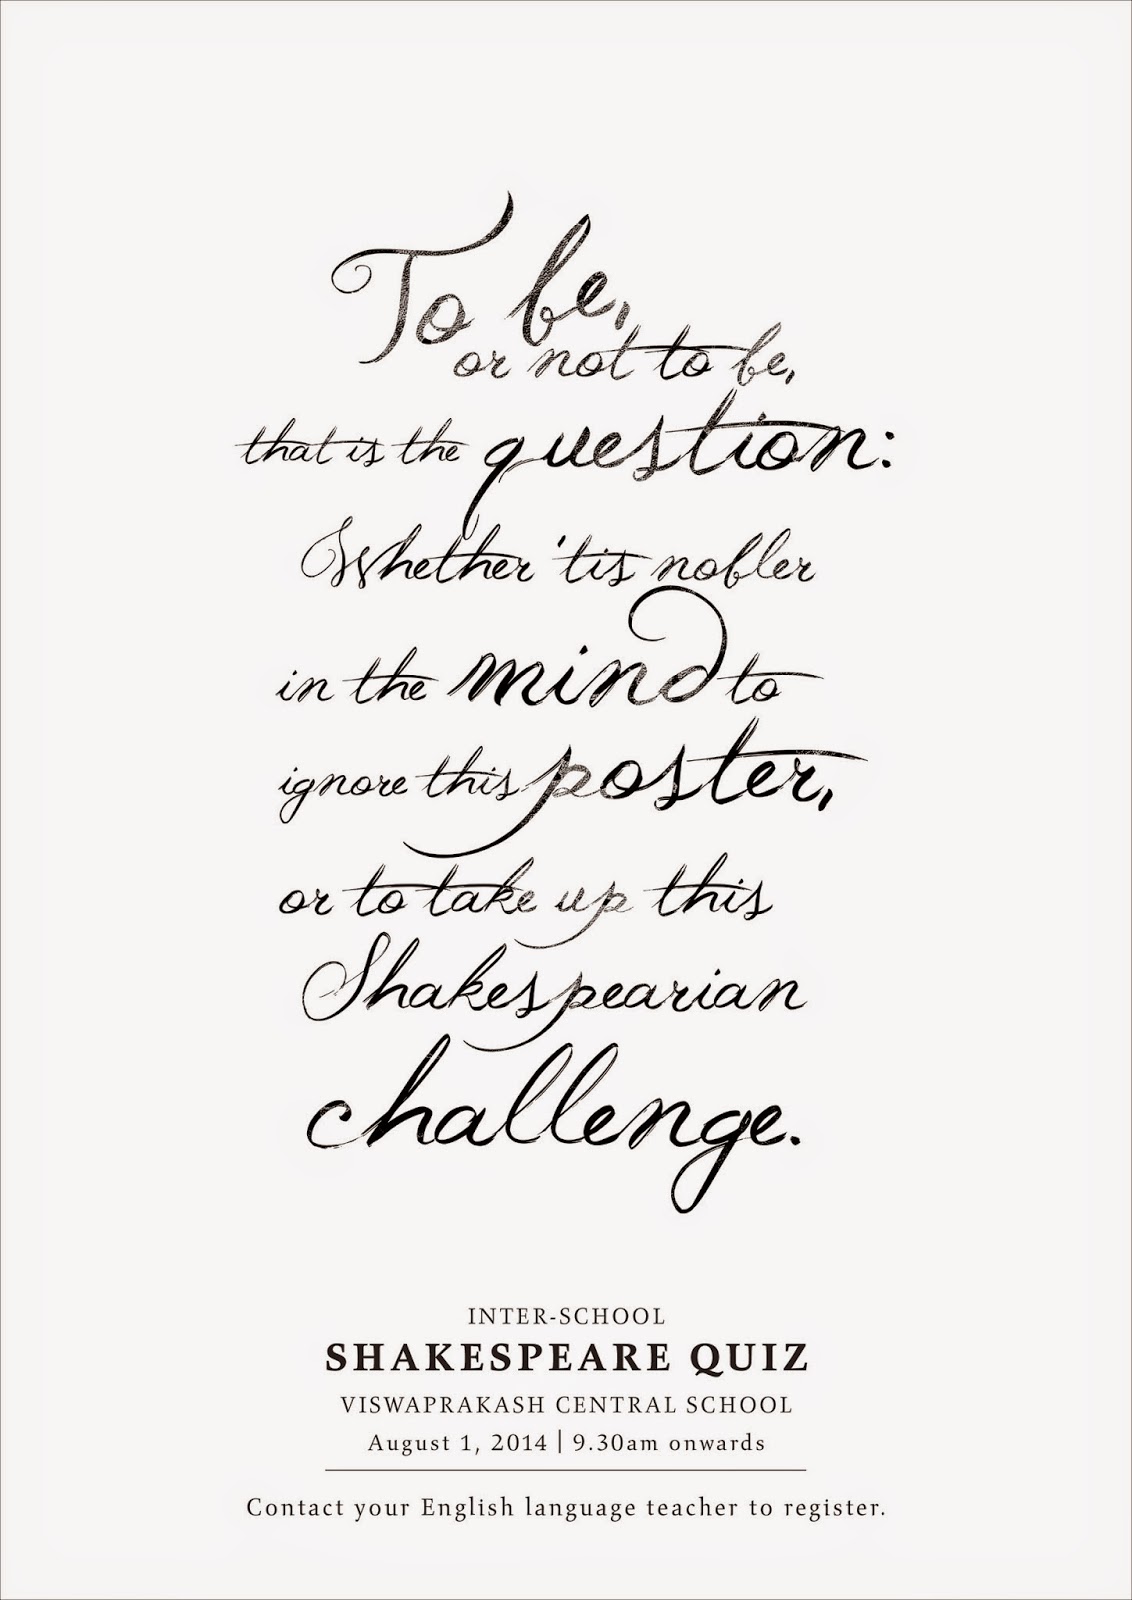 To be,
or not to be,
that is the question:
Whether 'tis nobler
in the mind to
ignore this poster,
or to take up this
Shakespearian
challenge.
INTER-SCHOOL
SHAKESPEARE QUIZ
VISWAPRAKASH CENTRAL SCHOOL
August 1, 2014 | 9.30am onwards
Contact your English language teacher to register.